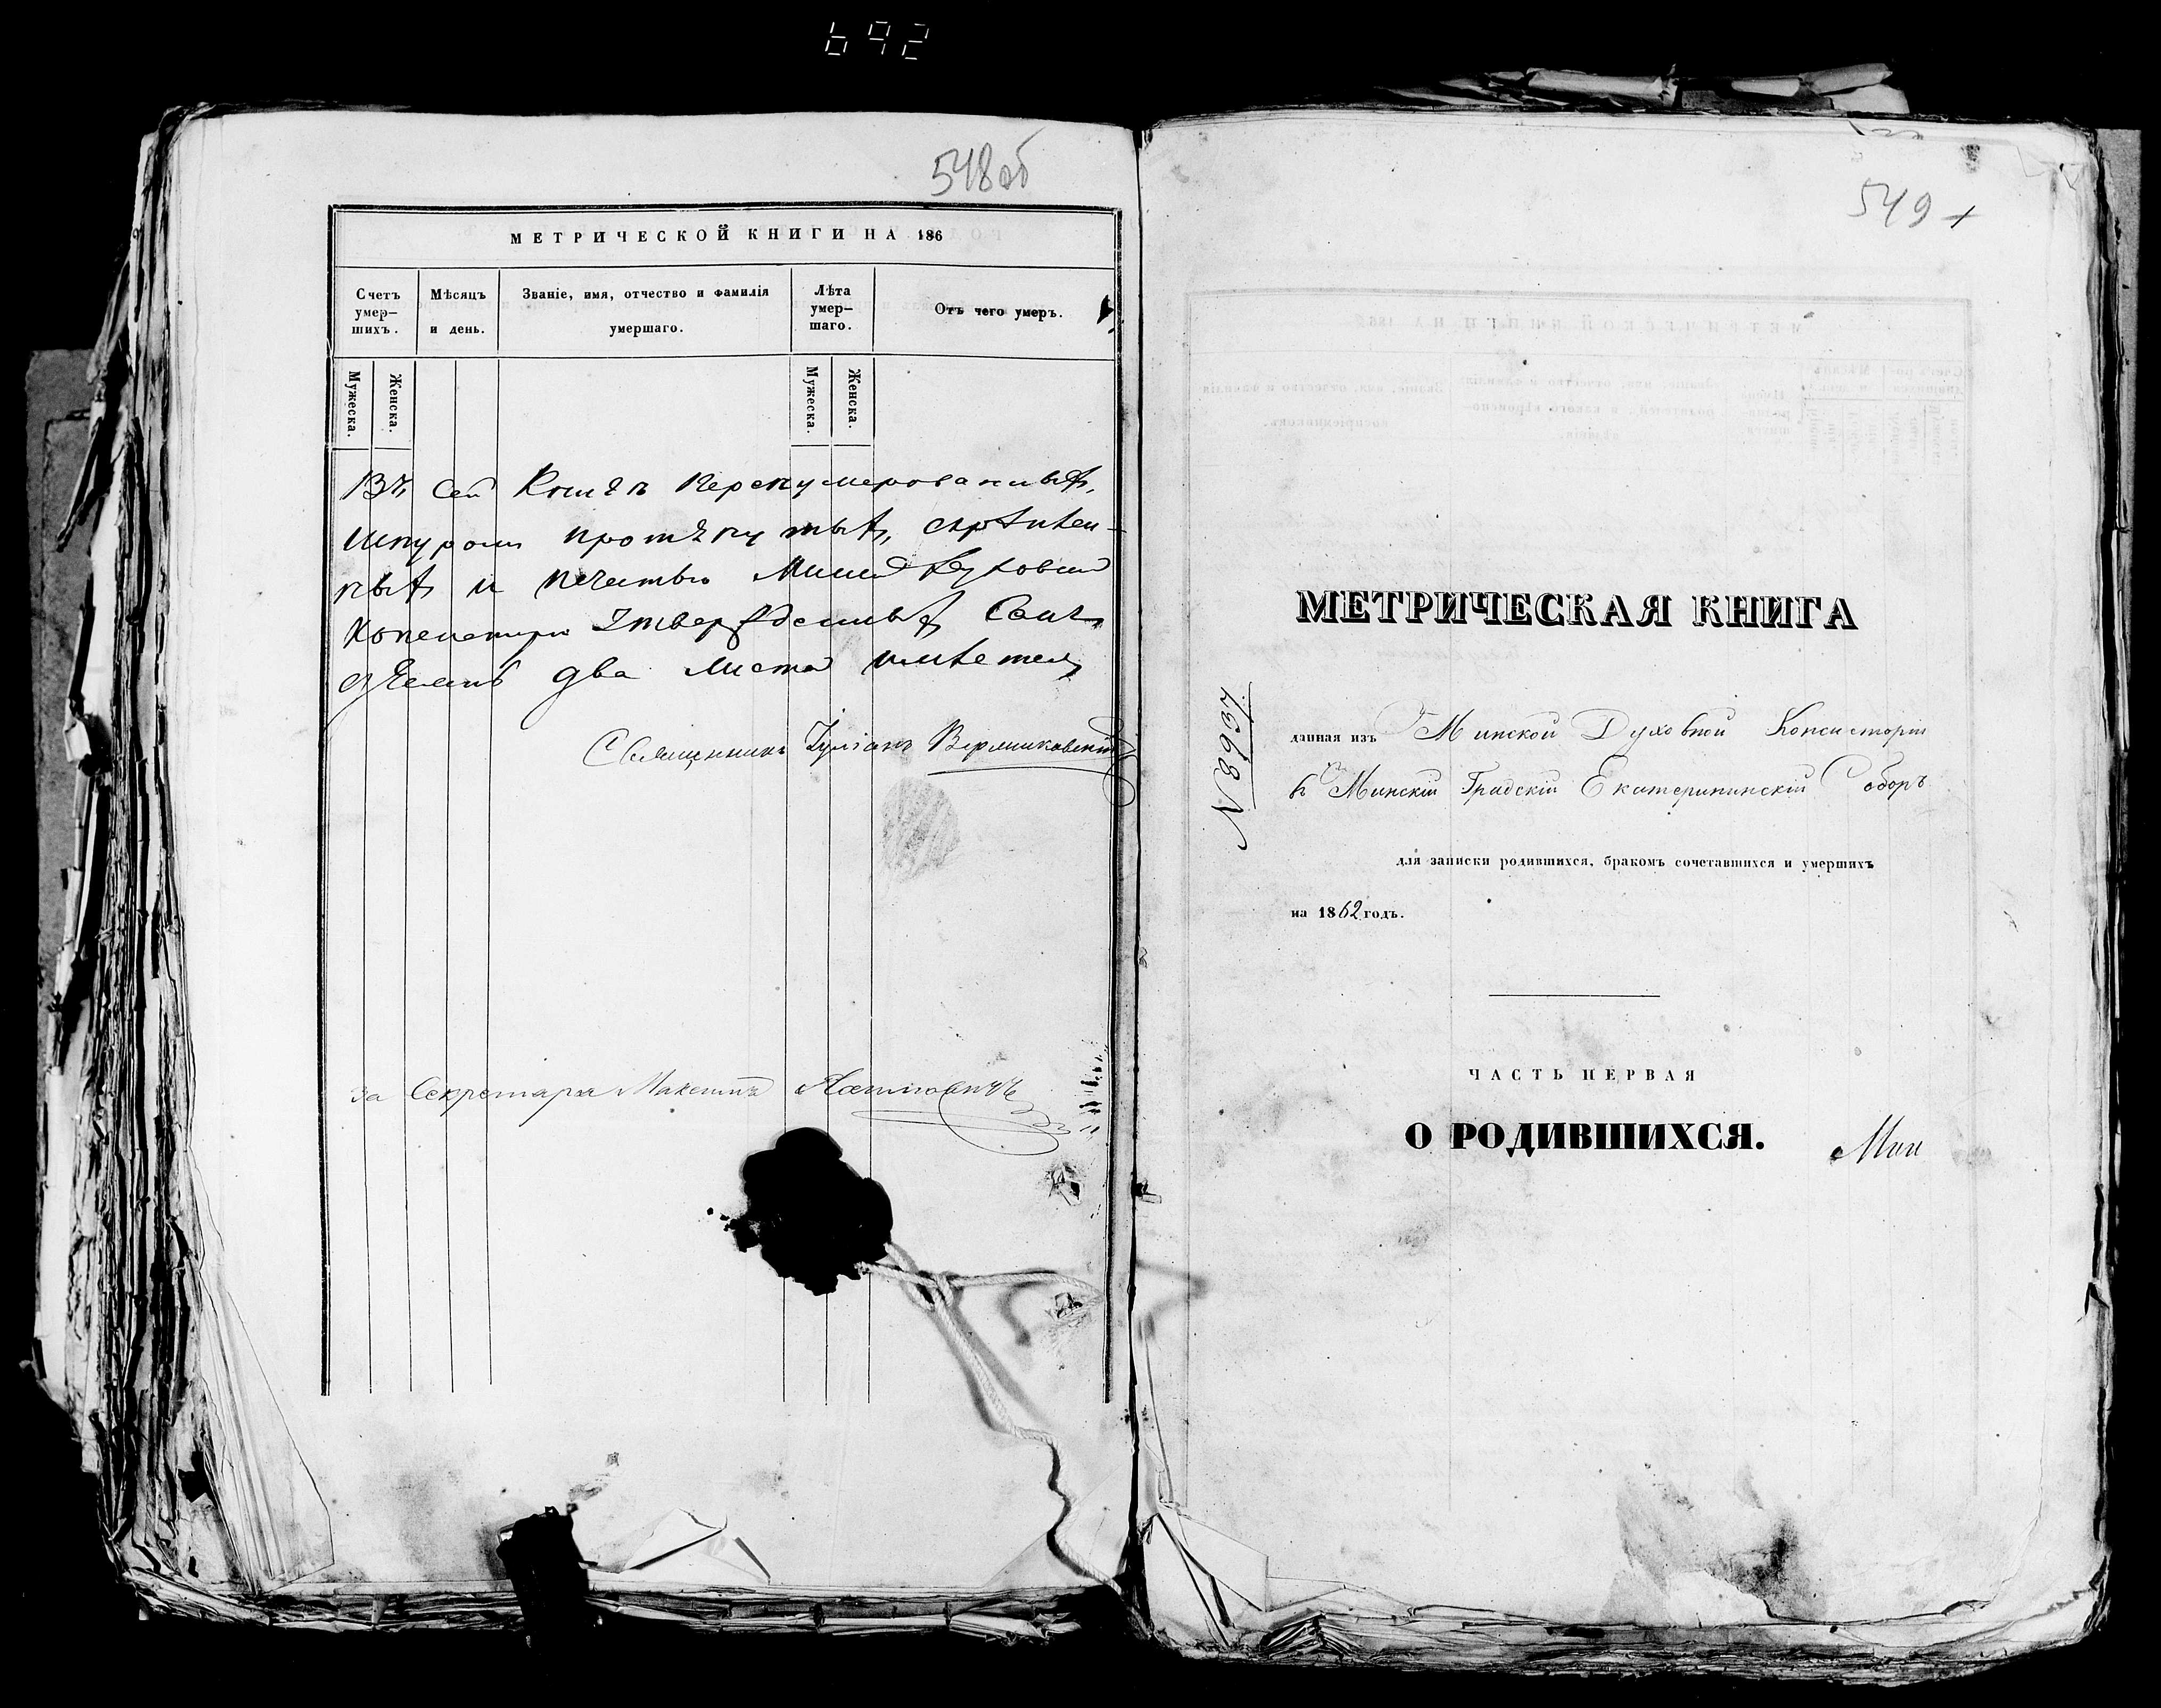 692
548 об
МЕТРИЧЕСКОЙ КНИГИ НА 186
Счетъ умер-шихъ.
Мѣсяцъ и день.
Званіе, имя, отчество и фамилія умершаго.
Лѣта умер-шаго.
Отъ чего умеръ.
Мужеска.
Женска.
Мужеска.
Женска.
Въ сей Книгѣ перенумерованныхъ,
шнуромъ протянутыхъ, скрѣплен-
ныхъ и печатью Минской Духовной
Консисторіи утвержденныхъ
два листа имѣется
Священникъ
за Секретаря
549
МЕТРИЧЕСКАЯ КНИГА
№ 8937
данная изъ Минской Духовной Консисторіи
въ Минскій Градскій Екатерининскій Соборъ
для записки родившихся, бракомъ сочетавшихся и умершихъ
на 1862 годъ.
ЧАСТЬ ПЕРВАЯ
О РОДИВШИХСЯ.
Мин